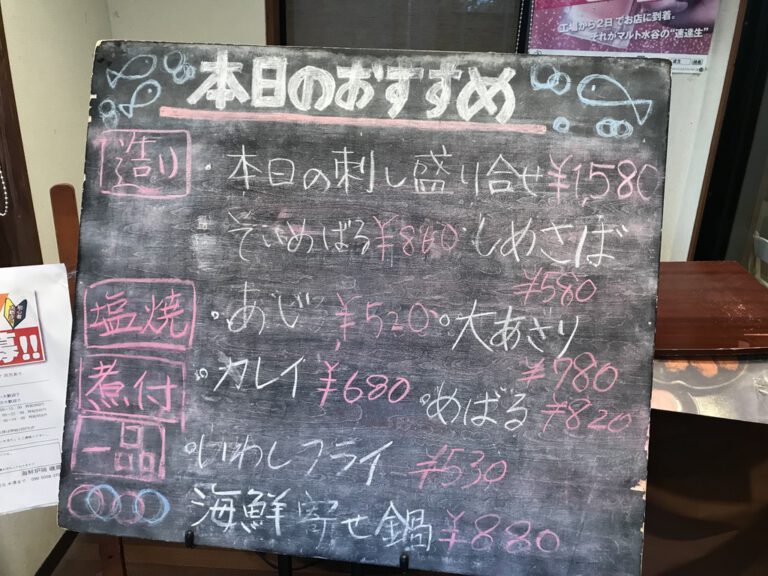 工場から2日でお店に到着。
それがマルト水谷の"速達生"
本日のおすすめ
造り ・本日の刺し盛り合せ ¥1,580
そいめばる ¥880 ・しめさば
¥580
塩焼 あじ ¥520 大あさり
¥780
煮付 カレイ ¥680 めばる ¥820
一品 いわしフライ ¥530
海鮮寄せ鍋 ¥880
!!